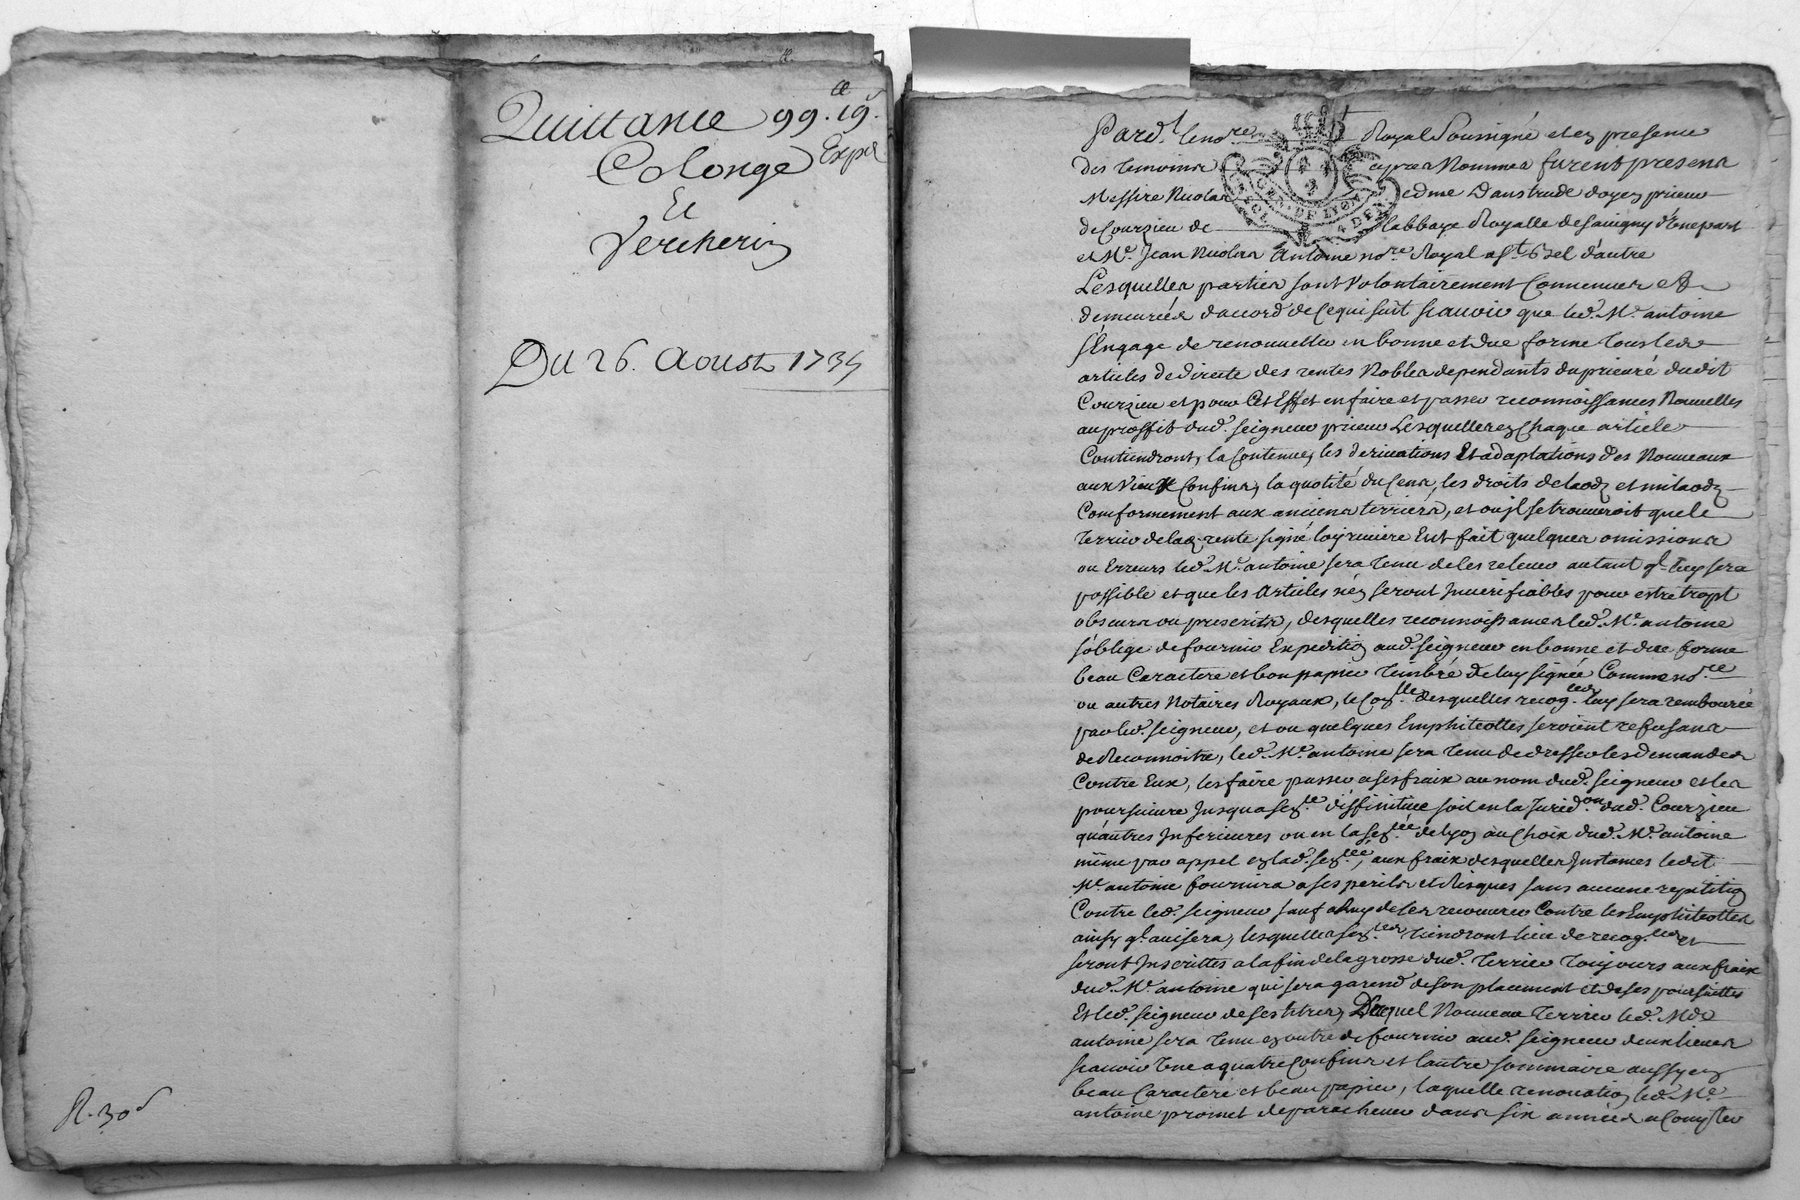 Quittance 99.tt 19.s
Exped
Colonge
Et
Vercherin
Du 26. Aoust 1735
R. 30.s
Pard.t le no.re Royal Soussigné et en presence
des temoins cyprez Nommes furent present
Messire Nicolas edme Danstrude doyen prieur
de Courzieu de Labbaye Royalle de Savigny d'une part
GEN. DE LYON
et M.e Jean Nicolas Antoine no.re Royal a St. Bel d'autre
Lesquelles parties sont volontairement Convenues et
demeurées daccord de Ce qui suit scavoir que led. M.e antoine
s'Engage de renouveller en bonne et due forme tous les
articles de directe des rentes Nobles dependants du prieuré dudit
Courzieu et pour Cet Effet en faire et passer reconnoissances Nouvelles
au proffit dud. seigneur prieur Lesquelles en Chaque article
Contiendront, la Contenue, les derivations Et adaptations des Nouveaux
aux vieux Confins, la quotité du Cens, les droits de laods et milaods
Comformement aux anciens terriers, et ou jl se trouveroit que le
terrier de lad. rente signé Eut fait quelques omissions
ou Erreurs led. M.e antoine sera tenu de les relever autant ql. luy sera
possible et que les Articles n'en seront Inverifiables pour estre tropt
obscurs ou prescrits, desquelles reconnoissances led. M.e antoine
s'oblige de fournir Expedition aud. seigneur en bonne et due forme
beau Caractere et bon papier timbré de luy signée Comme no.re
ou autres Notaires Royaux, le Con.lle desquelles recog.ces luy sera rembourcé
par led. seigneur, et ou quelques Emphiteottes seroient refusans
de Reconnoitre, led. M.e antoine sera tenu de dresser les demandes
Contre Eux, les faire passer a ses fraix au nom dud. seigneur et les
poursuivre Jusqua sen.ce diffinitive soit en la Jurid.on dud. Courzieu
qu'autres Inferieures ou en la sen.cée de Lyon au Choix dud. M.e antoine
même par appel en lad. sen.cée, aux fraix desquelles Instances ledit
M.e antoine fournira a ses perils et Risques sans aucune repetition
Contre led. seigneur sauf a luy de les recouvrer Contre les Emphiteottes
ainsy ql. avisera, lesquelles sen.ces tiendront lieu de recog.ces et
seront Inscrittes a la fin de la grosse dud. terrier toujours aux fraix
dud. M.e antoine qui sera garend de son placement et de ses poursuittes
Et led. seigneur de ses titres, Duquel Nouveau terrier led. M.e
antoine sera tenu en outre de fournir aud. seigneur deux lieves
scavoir Une a quatre Confins et lautre sommaire aussy en
beau Caractere et beau papier, laquelle renovation led. M.e
antoine promet de parachever dans six années a Compter